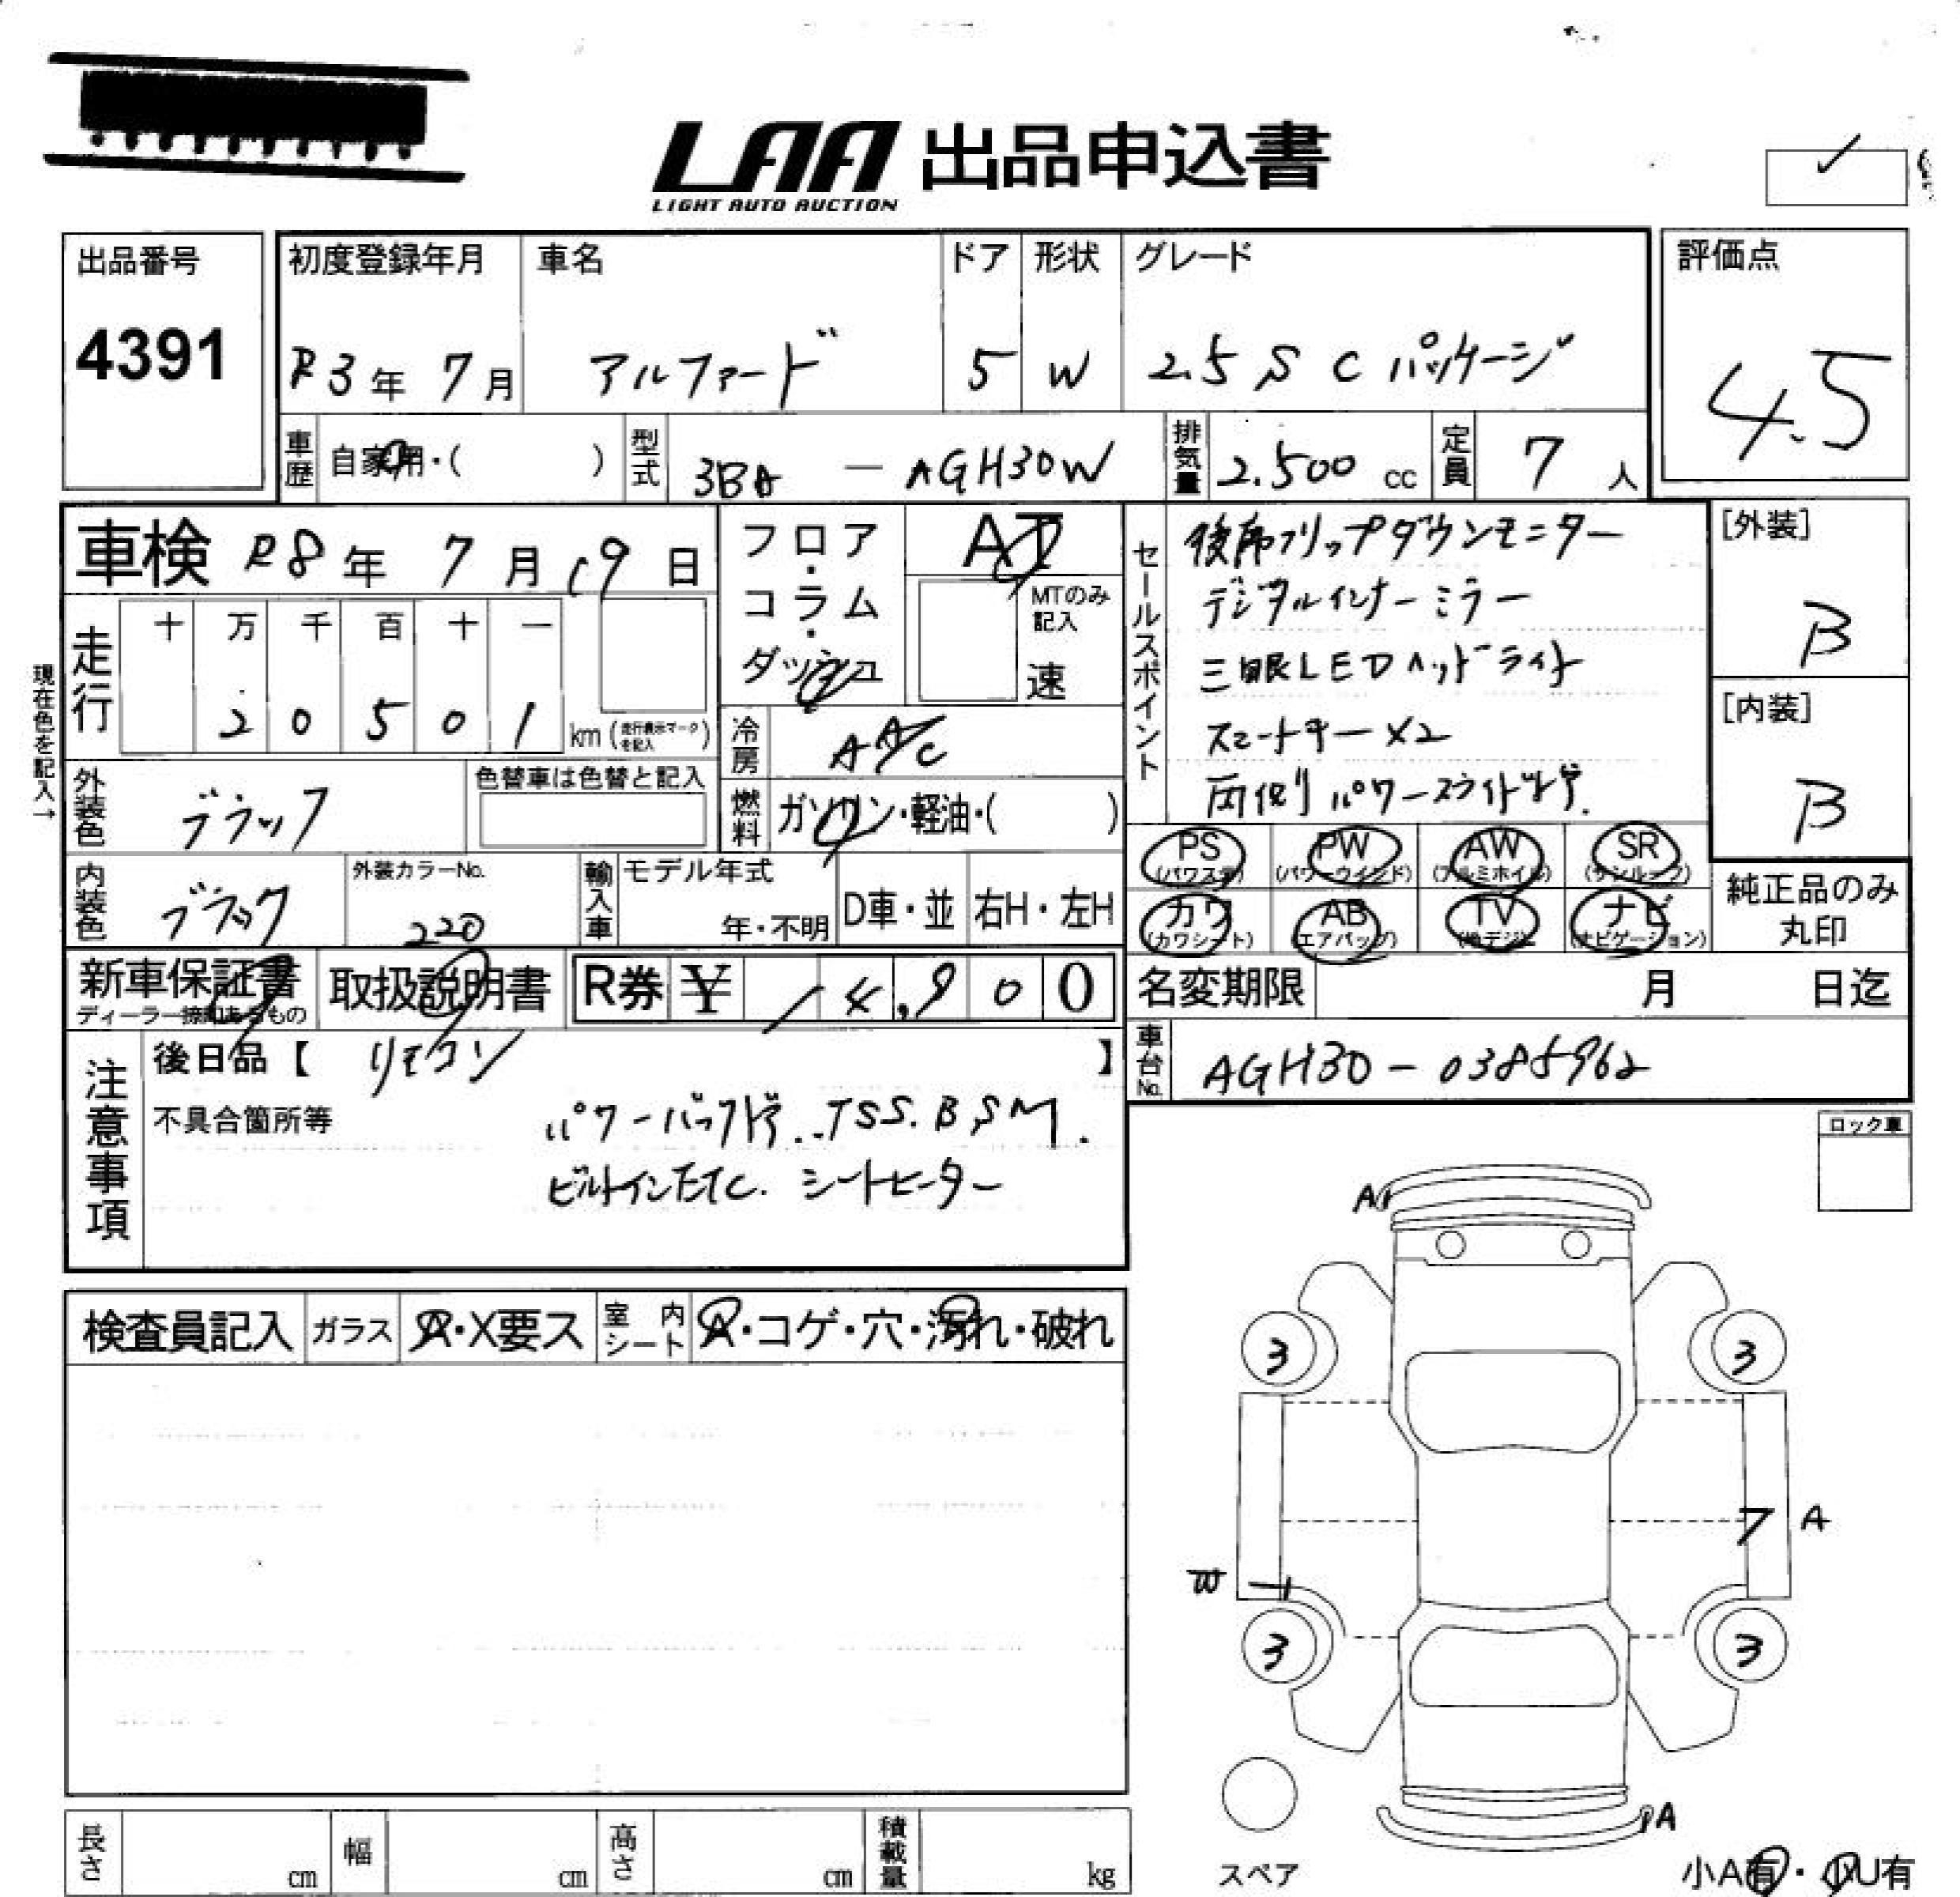 LAA 出品申込書
LIGHT AUTO AUCTION
出品番号
4391
初度登録年月
R3年 7月
車名
アルファード
ドア
5
形状
W
グレード
2.5 S C パッケージ
評価点
4.5
車歴
自家用・( )
型式
3BA - AGH30W
排気量
2.500 cc
定員
7 人
車検 R8年 7月 19日
フロア・コラム・ダッシュ
AT
MTのみ記入
速
セールスポイント
後席フリップダウンモニター
デジタルインナーミラー
三眼LEDヘッドライト
スマートキー×2
両側パワースライドドア.
[外装]
B
[内装]
B
現在色を記入→
走行
十 万 千 百 十 一
2 0 5 0 1 km (走行表示マークを記入)
冷房
AAC
外装色
ブラック
色替車は色替と記入
燃料
ガソリン・軽油・( )
PS (パワステ)
PW (パワーウインド)
AW (アルミホイル)
SR (サンルーフ)
カワ (カワシート)
AB (エアバッグ)
TV (地デジ)
ナビ (ナビゲーション)
純正品のみ
丸印
内装色
ブラック
外装カラーNo.
220
輸入車
モデル年式
年・不明
D車・並
右H・左H
新車保証書
取扱説明書
R券 ¥ 14,900
名変期限 月 日迄
車台No.
AGH30-0385962
注意事項
後日品【 リモコン 】
不具合箇所等
パワーバックドア. TSS. BSM.
ビルトインETC. シートヒーター
ロック車
検査員記入
ガラス
A・X要ス
室内シート
A・コゲ・穴・汚れ・破れ
A
3
3
7 A
W
3
3
A
スペア
小A有・小U有
長さ cm
幅 cm
高さ cm
積載量 kg